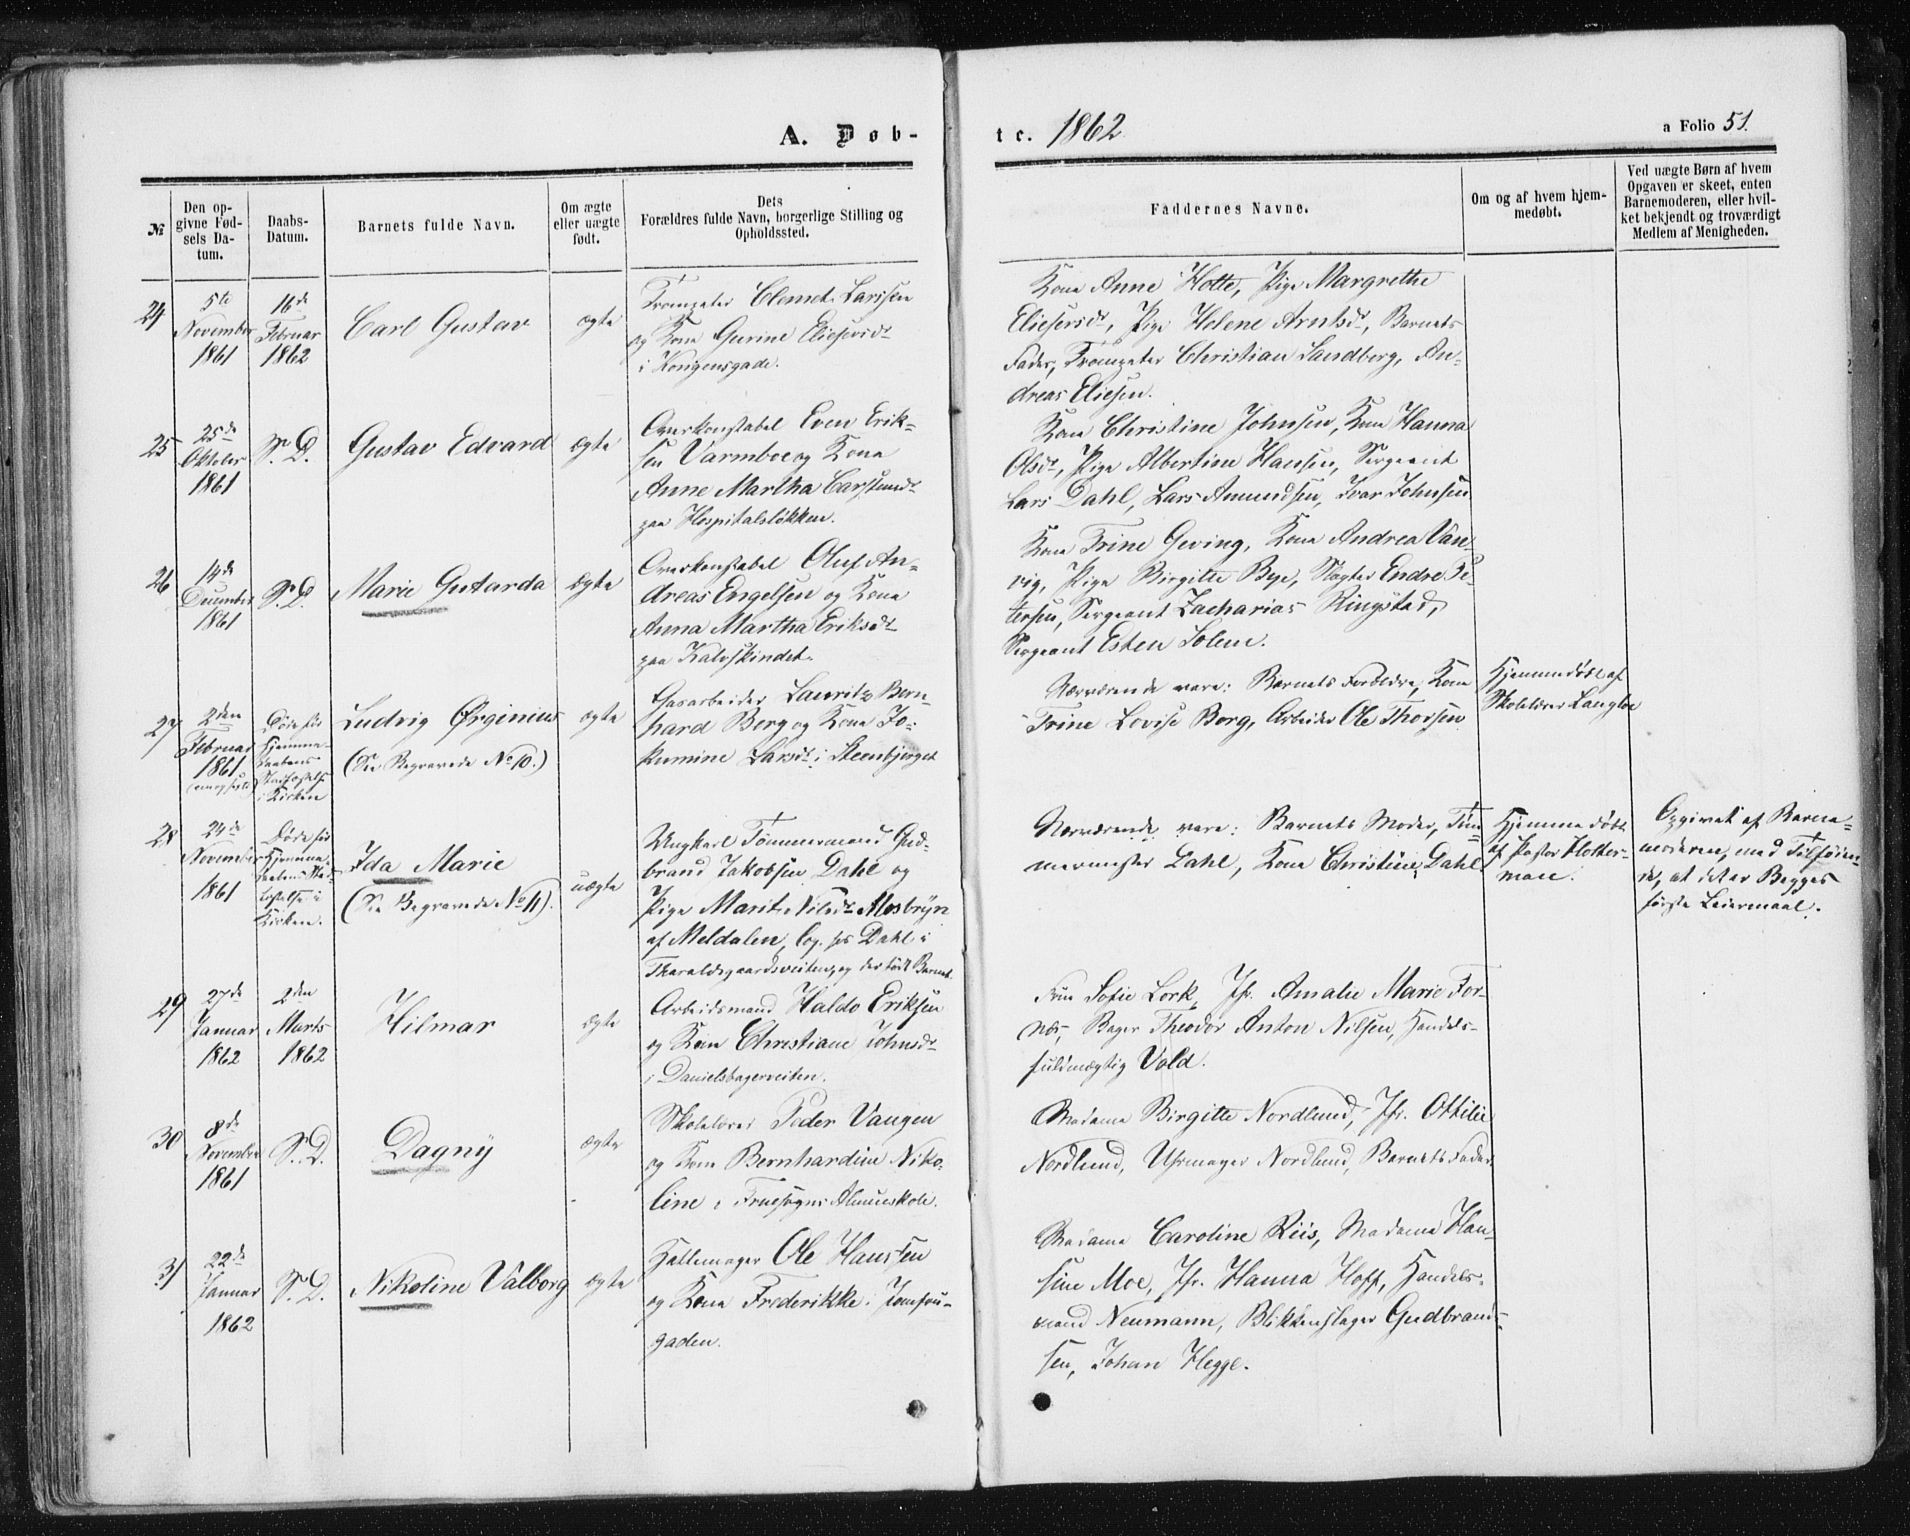 A. Døb-
te. 1862
a Folio 51.
№
Den op-
givne Fød-
sels Da-
tum.
Daabs-
Datum.
Barnets fulde Navn.
Om ægte
eller uægte
født.
Dets
Forældres fulde Navn, borgerlige Stilling og
Opholdssted.
Faddernes Navne.
Om og af hvem hjem-
medøbt.
Ved uægte Børn af hvem
Opgaven er skeet, enten
Barnemoderen, eller hvil-
ket bekjendt og troværdigt
Medlem af Menigheden.
24
5te
November
1861
16de
Februar
1862
Carl Gustav
ægte
Trompeter Clemet Larssen
og Kone Gurine Eliesersdr
i Kongensgade.
Kone Anne Hotte, Pige Margrethe
Eliesersdr, Pige Helene Arntsdr, Barnets
Fader, Trompeter Christian Sandberg, An-
dreas Eliesen.
25
25de
Oktober
1861
S. D.
Gustav Edvard
ægte
Overkonstabel Even Erik-
sen Varmboe og Kone
Anne Martha Carstensdr
paa Hospitalsløkken.
Kone Christine Johnsen, Kone Hanna
Olsdr, Pige Albertine Hansen, Sergeant
Lars Dahl, Lars Amundsen, Ivar Johnsen
26
14de
December
1861
S. D.
Marie Gutarda
ægte
Overkonstabel Oluf An-
dreas Engelsen og Kone
Anna Martha Eriksdr
paa Kalvskindet.
Kone Trine Geving, Kone Andrea Van-
vig, Pige Birgitte Bye, Slagter Endre Pe-
tersen, Sergeant Zacharias Ringstad,
Sergeant Esten Solem.
27
2den
Februar
1861
Døde før
Hjemme-
daabens
Stadfæstelse
i Kirken
Ludvig Ørginius
(Se Begravede No 10.)
ægte
Gasarbeider Lauritz Bern-
hard Berg og Kone Jo-
kumine Larsdr i Steenbjerget
Nærværende vare: Barnets Forældre, Kone
Trine Lovise Borg, Arbeider Ole Thorsen
Hjemmedøbt af
Skolelærer Langloe
28
24de
November
1861
Døde før
Hjemme-
daabens Stad-
fæstelse i
Kirken.
Ida Marie
(Se Begravede No 11).
uægte
Ungkarl Tømmermand Gud-
brand Jakobsen Dahl og
Pige Marit Nilsdr Mosbryn
af Meldalen, log. hos Dahl i
Tharaldsgaardsveiten, og der født Barnet
Nærværende vare: Barnets Moder, Tøm-
mermester Dahl, Kone Christine Dahl
Hjemmedøbt
af Pastor Holter-
man.
Opgivet af Barne-
moderen, med Tilføien-
de, at det er Begges
første Leiermaal.
29
27de
Januar
1862
2den
Marts
1862
Hilmar
ægte
Arbeidsmand Haldo Eriksen
og Kone Christiane Johnsdr
i Danielsbagerveiten.
Fru Sofie Lork, Jfr. Amalie Marie For-
næs, Bager Theodor Anton Nilsen, Handels-
fuldmægtig Vold.
30
8de
November
1861
S. D.
Dagny
ægte
Skolelærer Peder Vangen
og Kone Bernhardine Niko-
line i Fruesogns Almueskole.
Madame Birgitte Nordlund, Jfr. Ottilie
Nordlund, Uhrmager Nordlund, Barnets Fader.
31
22de
Januar
1862
S. D.
Nikoline Valborg
ægte
Hattemager Ole Hanssen
og Kone Frederikke i Jomfru-
gaden.
Madame Caroline Riis, Madame Han-
sine Moe, Jfr. Hanna Hoff, Handels-
mand Neumann, Blikkenslager Gudbrand-
sen, Johan Hegge.